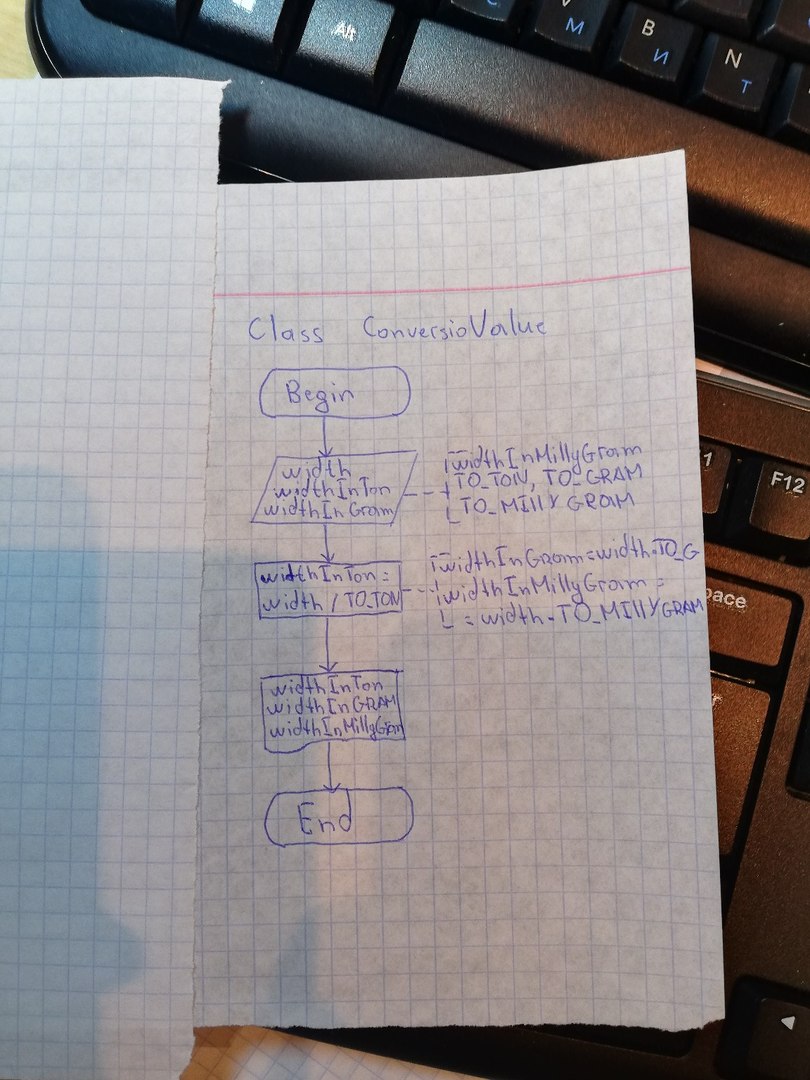 Alt
C
V
M
B
И
N
T
Class ConversioValue
Begin
width
widthInTon
widthInGram
widthInMillyGram
TO_TON, TO_GRAM
TO_MILLYGRAM
widthInTon =
width / TO_TON
widthInGram = width * TO_G
widthInMillyGram =
= width * TO_MILLYGRAM
widthInTon
widthInGRAM
widthInMillyGram
End
1
F12
pace